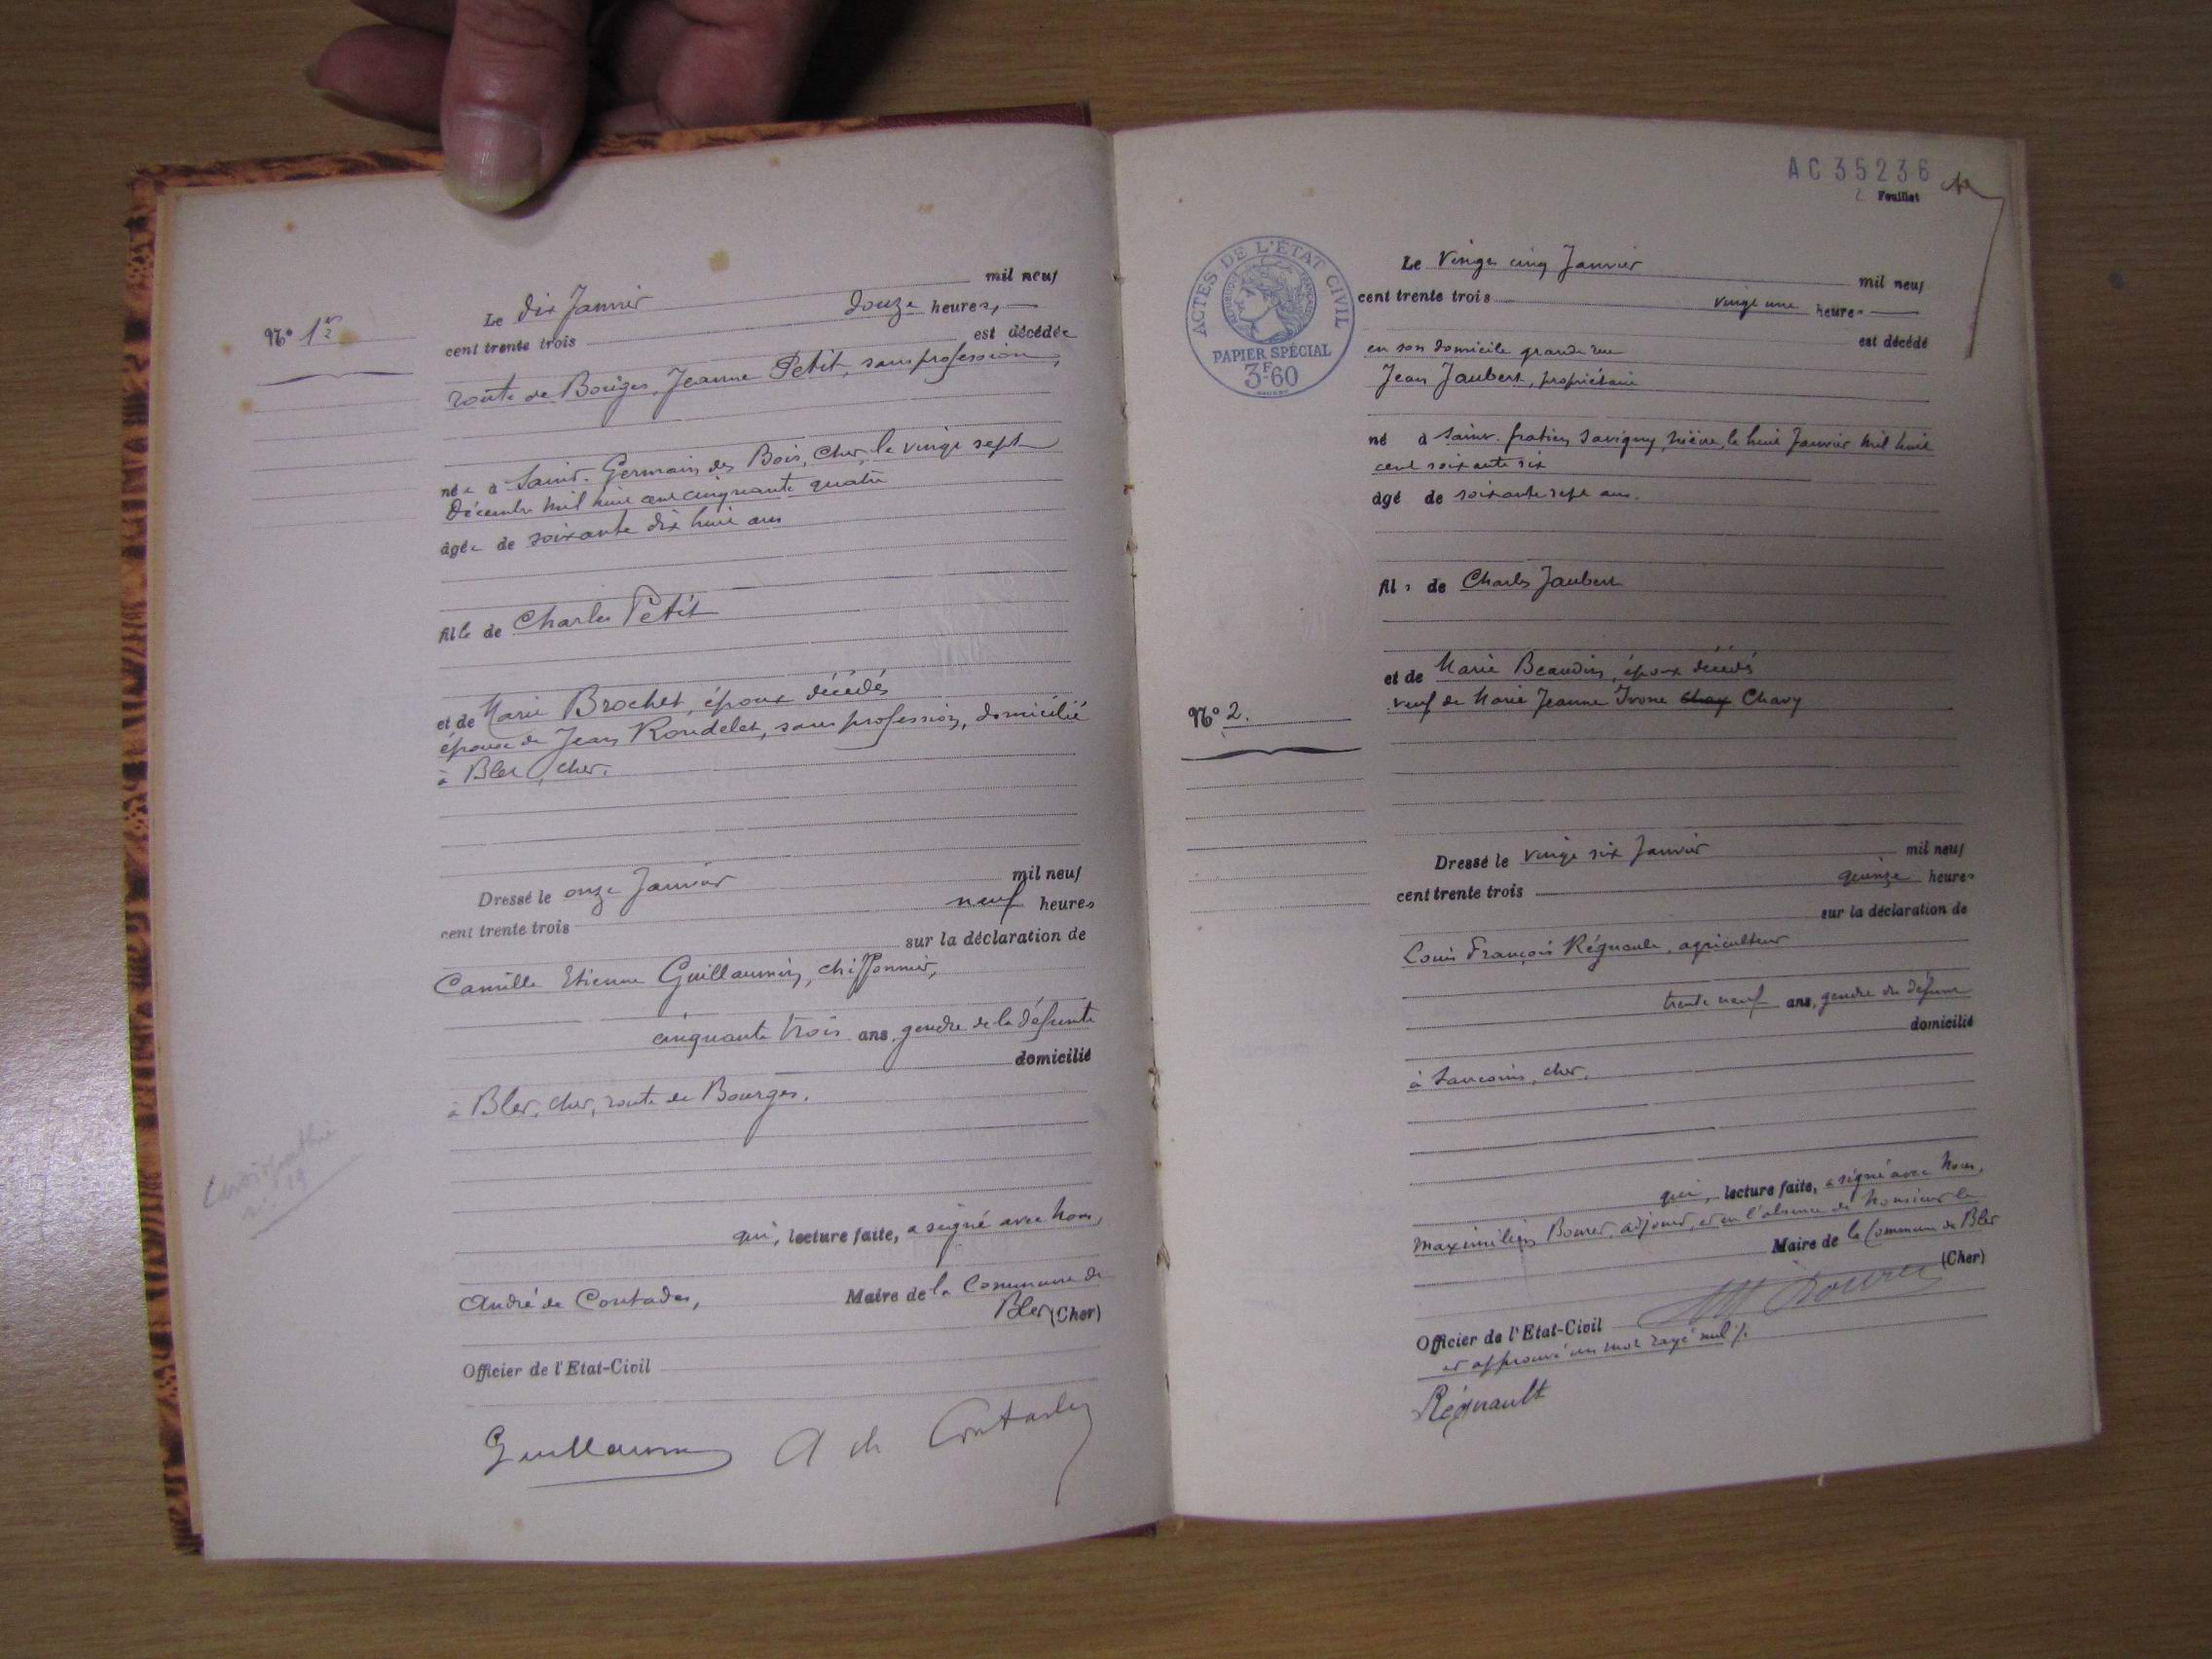 Nº 1er
Le dix Janvier mil neuf
cent trente trois douze heures,
est décédée
route de Bourges, Jeanne Petit, sans profession,
née à Saint-Germain des Bois, Cher, le vingt sept
Décembre mil huit cent cinquante quatre
âgée de soixante dix huit ans
fille de Charles Petit
et de Marie Brochet, époux décédés
épouse de Jean Rondelet, sans profession, domicilié
à Blet, Cher.
Dressé le onze Janvier mil neuf
cent trente trois neuf heures
sur la déclaration de
Camille Etienne Guillaumin, chiffonnier,
cinquante trois ans, gendre de la défunte
domicilié
à Blet, Cher, route de Bourges.
qui, lecture faite, a signé avec Nous,
André de Contades, Maire de la Commune de
Blet (Cher)
Officier de l'Etat-Civil
Guillaumin A de Contades
AC 35236
2 Feuillet
ACTES DE L'ÉTAT CIVIL
RÉPUBLIQUE FRANÇAISE
PAPIER SPÉCIAL
3F.60
Nº 2.
Le vingt cinq Janvier mil neuf
cent trente trois vingt une heures
est décédé
en son domicile grande rue
Jean Jaubert, propriétaire
né à Saint-Gratien Savigny, Nièvre, le huit Janvier mil huit
cent soixante six
âgé de soixante sept ans.
fils de Charles Jaubert
et de Marie Beaudin, époux décédés
veuf de Marie Jeanne Ivone Chavy
Dressé le vingt six Janvier mil neuf
cent trente trois quinze heures
sur la déclaration de
Louis François Régnault, agriculteur
trente neuf ans, gendre du défunt
domicilié
à Sancoins, Cher.
qui, lecture faite, a signé avec Nous,
Maximilien Bouret, adjoint, et en l'absence de Monsieur le
Maire de la Commune de Blet
(Cher)
Officier de l'Etat-Civil
et approuvé un mot rayé nul
Régnault